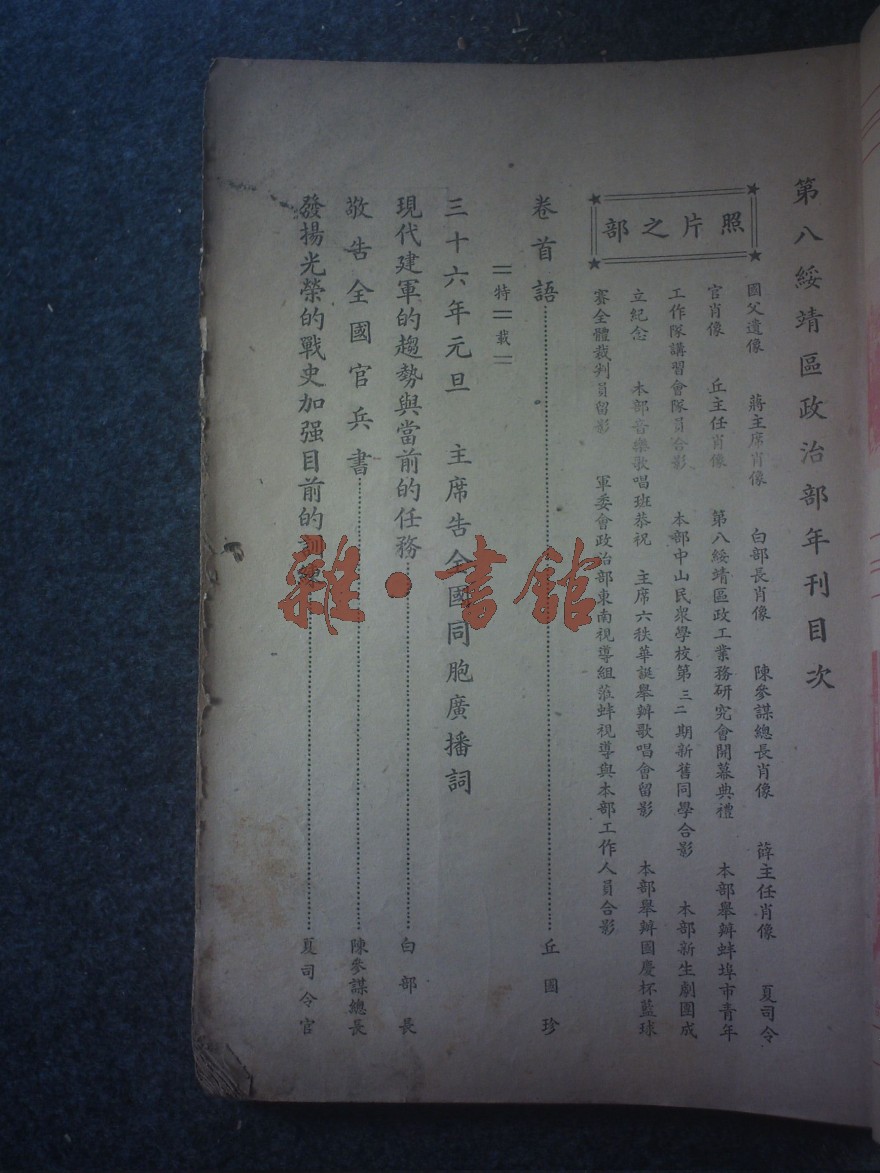 第八綏靖區政治部年刊目次
照片之部
國父遺像　蔣主席肖像　白部長肖像　陳參謀總長肖像　薛主任肖像　夏司令
官肖像　丘主任肖像　第八綏靖區政工業務研究會開幕典禮　本部舉辦蚌埠市青年
工作隊講習會隊員合影　本部中山民衆學校第三二期新舊同學合影　本部新生劇團成
立紀念　本部音樂歌唱班恭祝　主席六秩華誕舉辦歌唱會留影　本部舉辦國慶杯藍球
賽全體裁判員留影　軍委會政治部東南視導組蒞蚌視導與本部工作人員合影
卷首語……丘國珍
＝特＝載＝
三十六年元旦　主席告全國同胞廣播詞
現代建軍的趨勢與當前的任務……白部長
敬告全國官兵書……陳參謀總長
發揚光榮的戰史加强目前的訓練……夏司令官
雜·書館